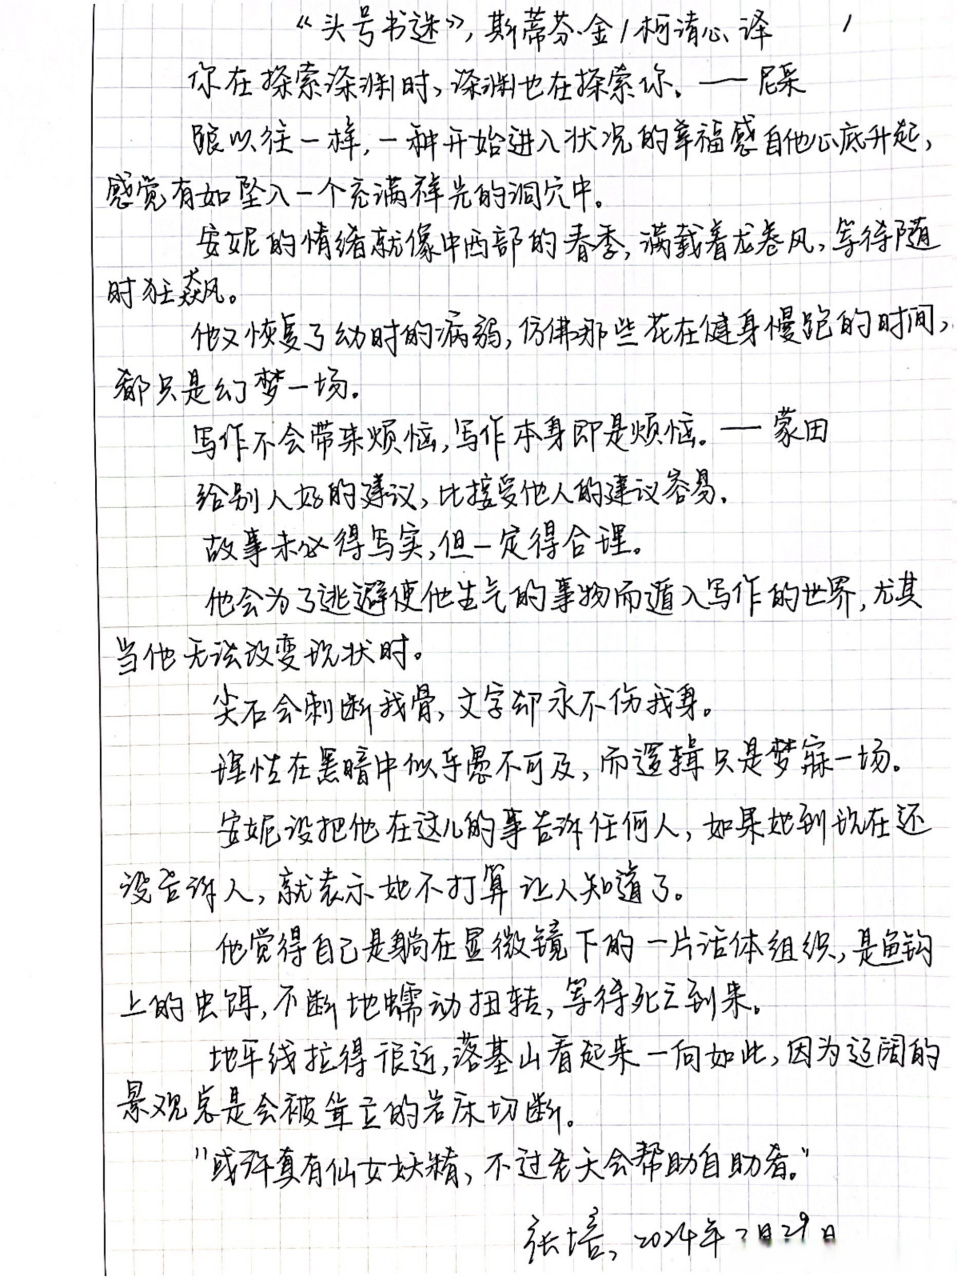 《头号书迷》，斯蒂芬·金/柯清心 译 1
你在探索深渊时，深渊也在探索你。——尼采
跟以往一样，一种开始进入状况的幸福感自他心底升起，
感觉有如坠入一个充满祥光的洞穴中。
安妮的情绪就像中西部的春季，满载着龙卷风，等待随
时狂飙。
他又恢复了幼时的病弱，仿佛那些花在健身慢跑的时间，
都只是幻梦一场。
写作不会带来烦恼，写作本身即是烦恼。——蒙田
给别人好的建议，比接受他人的建议容易。
故事未必得写实，但一定得合理。
他会为了逃避使他生气的事物而遁入写作的世界，尤其
当他无法改变现状时。
尖石会刺断我骨，文字却永不伤我身。
理性在黑暗中似乎愚不可及，而逻辑只是梦寐一场。
安妮没把他在这儿的事告诉任何人，如果她到现在还
没告诉人，就表示她不打算让人知道了。
他觉得自己是躺在显微镜下的一片活体组织，是鱼钩
上的虫饵，不断地蠕动扭转，等待死亡到来。
地平线拉得很近，落基山看起来一向如此，因为辽阔的
景观总是会被耸立的岩床切断。
"或许真有仙女妖精，不过老天会帮助自助者。"
张培，2024年2月29日